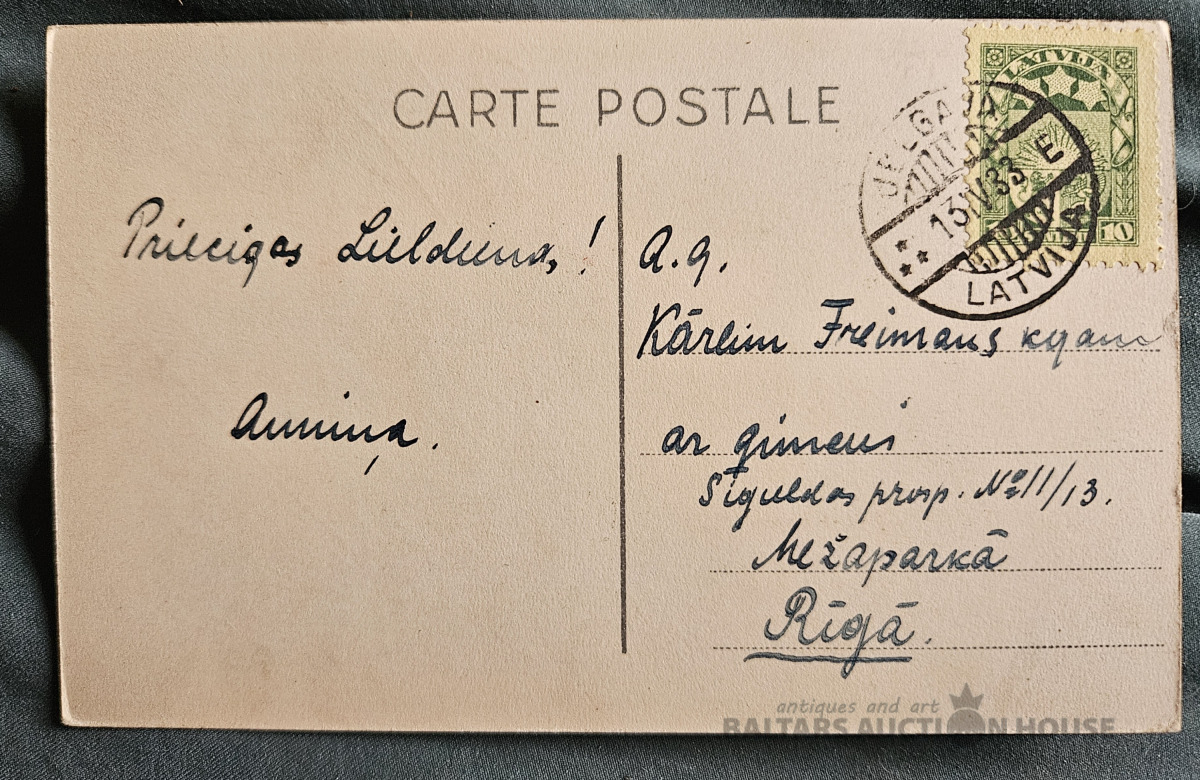 CARTE POSTALE
LATVIJA
10
JELGAVA
13 IV 33 E
LATVIJA
Priecīgas Lieldienas!
Anniņa.
A. g.
Kārlim Freimaņ kgam
ar ģimeni
Siguldas prosp. No 11/13.
Mežaparkā
Rīgā.
antiques and art
BALTARS AUCTION HOUSE